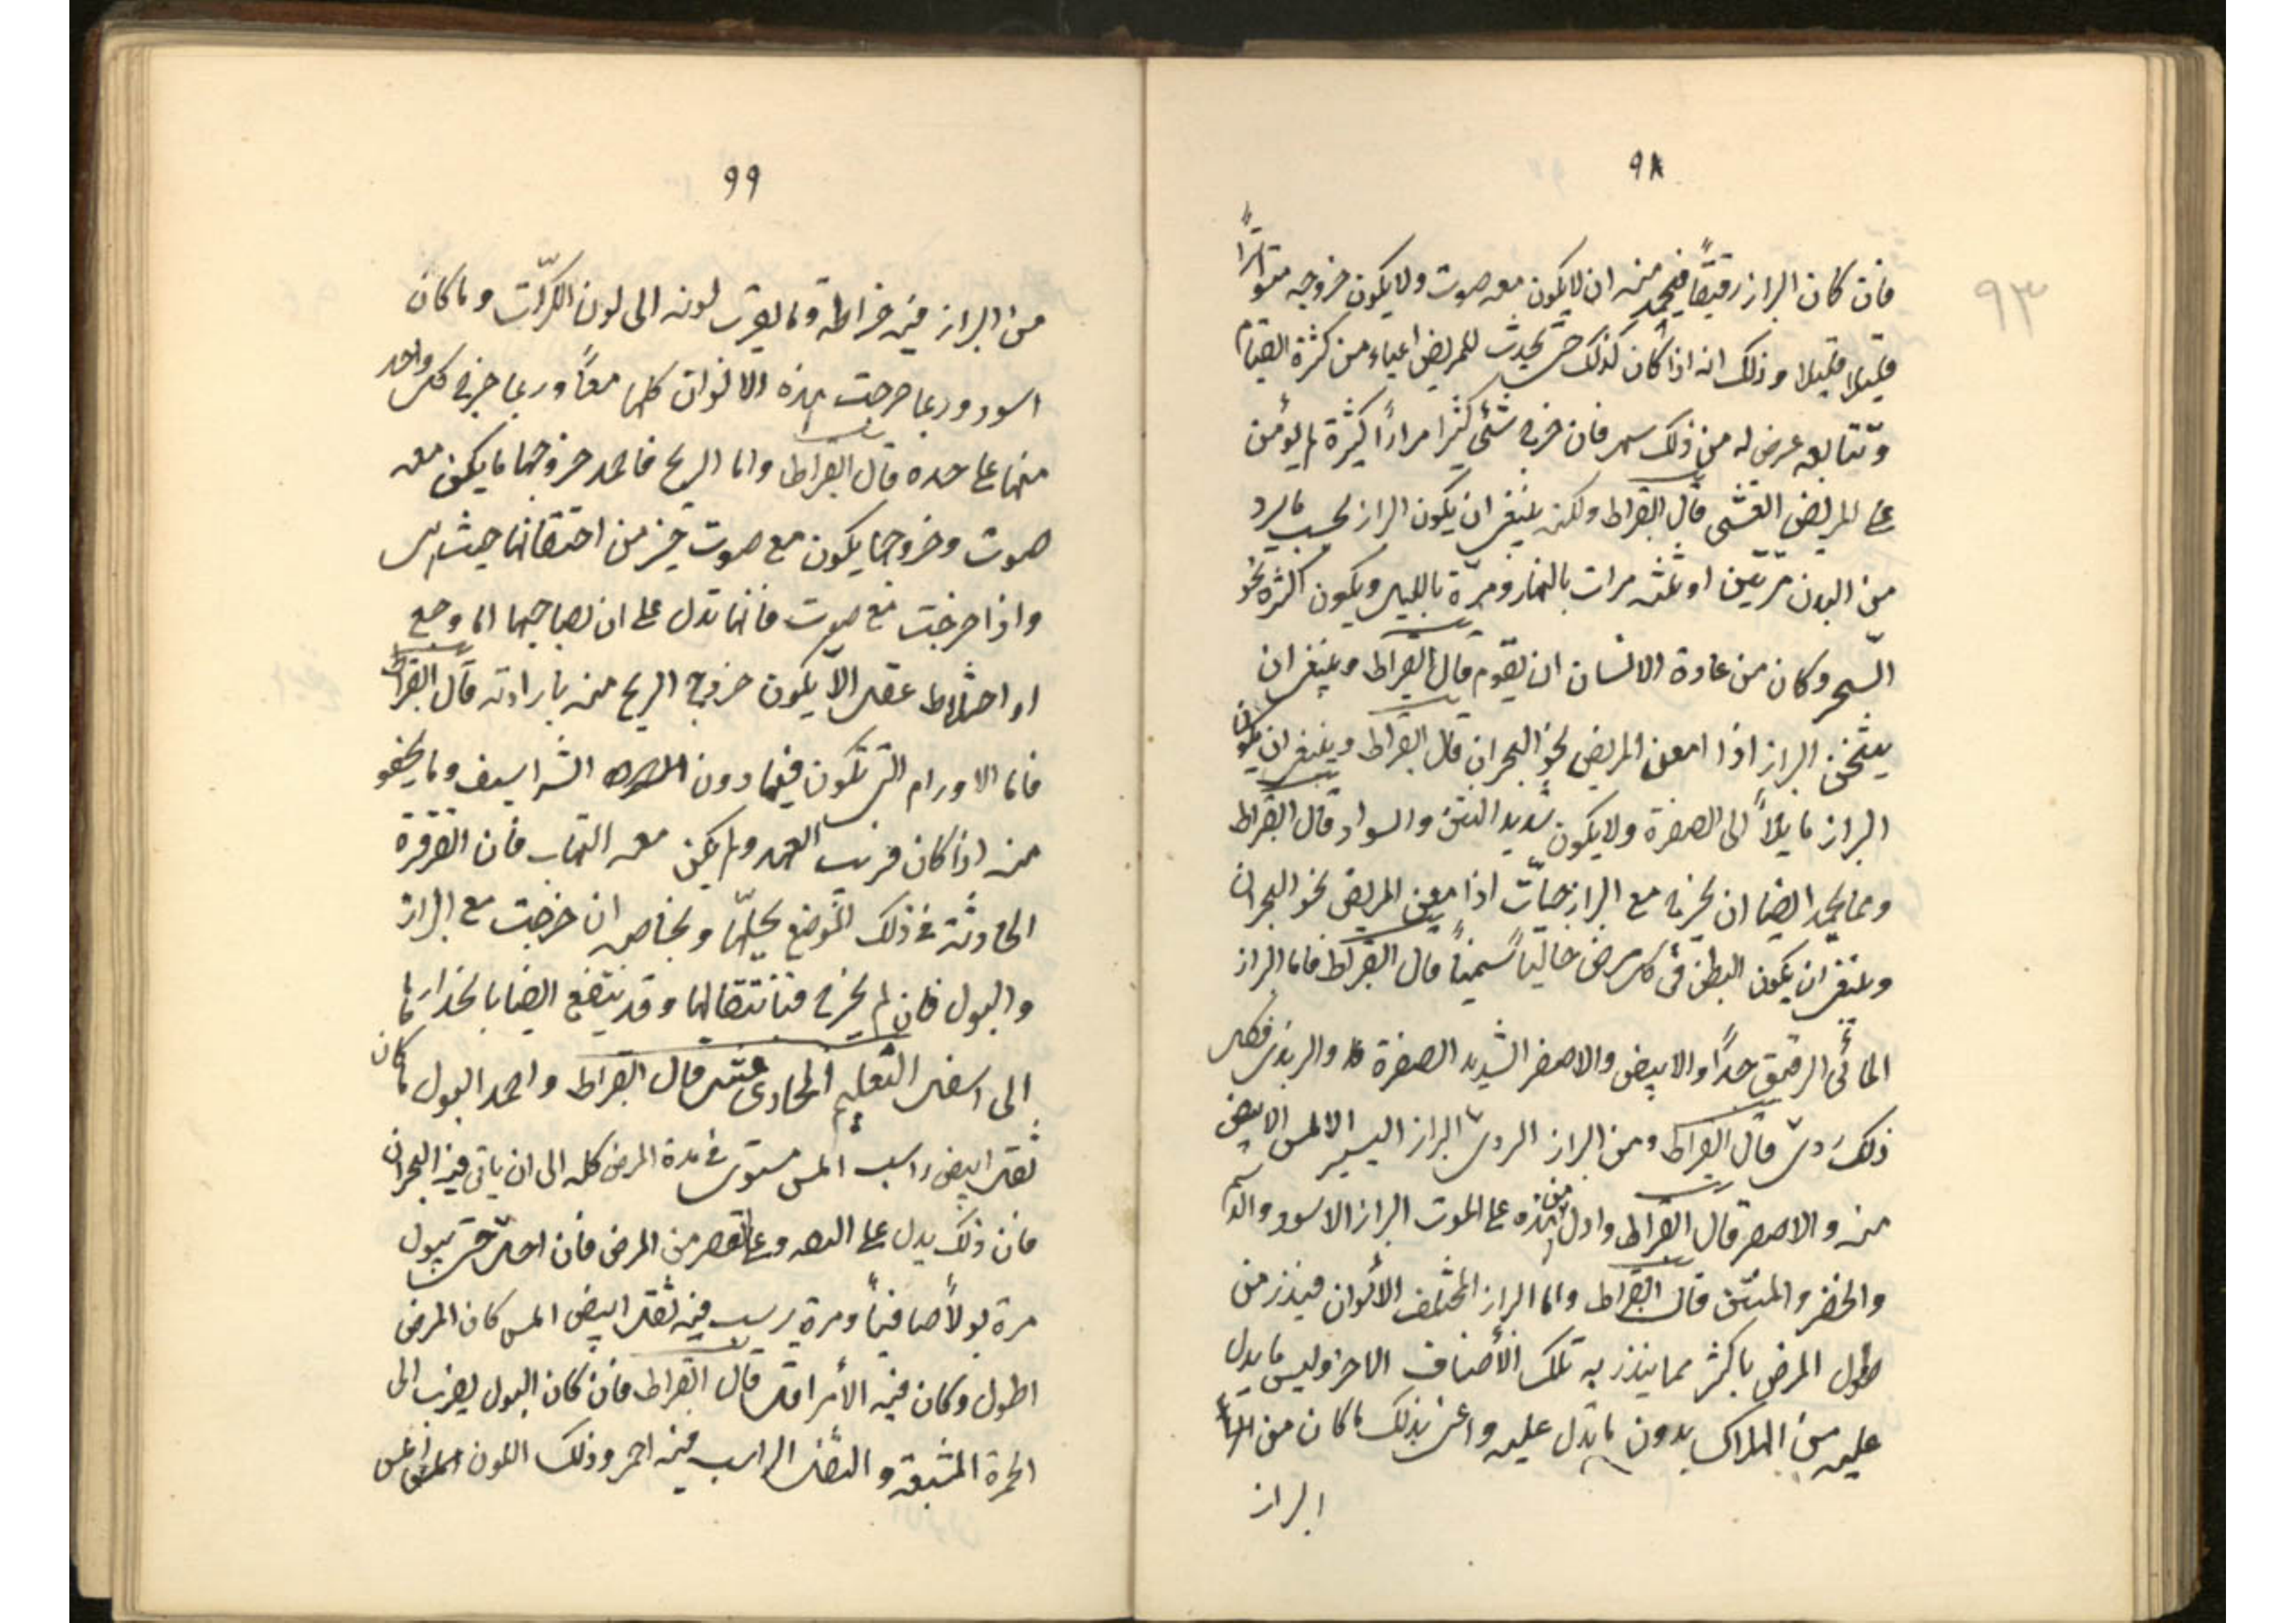 ٩٨
٩٣
فان كان البراز رقيقًا فيحمد منه ان لا يكون معه صوت ولا يكون خروجه متواترًا
قليلا قليلا وذلك انه اذا كان كذلك حتى يحدث للمريض اعياء من كثرة القيام
وتتابعه عرض له من ذلك سهر فان خرج شئ كثيرا مرارًا كثيرة لم يؤمن
على المريض الغشى قال ابقراط ولكن ينبغى ان يكون البراز بحسب ما يرد
من البدن مرّتين او ثلثه مرات بالنهار ومرّة بالليل ويكون اكثره نحو
السّحر وكان من عادة الانسان ان يقوم قال ابقراط وينبغى ان
يثخن البراز اذا امعن المريض نحو البحران قال ابقراط وينبغى ان يكون
البراز مايلاً الى الصفرة ولا يكون شديد النتن والسواد قال ابقراط
ومما يحمد ايضا ان يخرج مع البراز حيّات اذا امعن المريض نحو البحران
وينبغى ان يكون البطن فى كل مرض خاليًا سمينًا قال ابقراط فاما البراز
المائى الرقيق جدًا والابيض والاصفر الشديد الصفرة والزبدى فكل
ذلك ردى قال ابقراط ومن البراز الردى البراز اليسير الاملس الابيض
منه والاصفر قال ابقراط وادل من هذه على الموت البراز الاسود والدسم
والخضر والمنتن قال ابقراط واما البراز المختلف الألوان فينذر من
طول المرض باكثر مما ينذر به تلك الأصناف الاخر وليس ما يدل
عليه من الهلاك بدون ما تدل عليه واعنى بذلك ما كان من
البراز
٩٩
من البراز فيه خراطة وما يقرب لونه الى لون الكرّاث وما كان
اسود وربما خرجت هذه الالوان كلها معاً وربما خرج كل واحد
منها على حده قال ابقراط واما الريح فاحمد خروجها ما يكن معه
صوت وخروجها يكون مع صوت خير من احتقانها حيث هى
واذا خرجت مع صوت فانها تدل على ان بصاحبها اما وجع
او اختلاط عقل الاّ يكون خروج الريح منه بارادته قال ابقراط
فاما الاورام التى تكون فيما دون الشراسيف وما يخفو
منه اذا كان قريب العهد ولم يكن معه التهاب فان القرقرة
الحادثة فى ذلك الموضع يحلّها وبخاصه ان خرجت مع البراز
والبول فان لم يخرج فتانتقالها وقد ينتفع ايضا بانحدارها
الى اسفل التعليم الحادى عشر قال ابقراط واحمد البول ما كان
ثقل ابيض راسب املس مستوى فى مدة المرض كله الى ان ياتى فيه البحران
فان ذلك يدل على الثقه وعلى قصر من المرض فان اخل حتى يبول
مرة بولاً صافياً ومرة يرسب فيه ثقل ابيض املس كان المرض
اطول وكان فيه الأمر اقل قال ابقراط فان كان البول يضرب الى
الحمرة المشبعة والثفل الراسب فيه احمر وذلك اللون املس